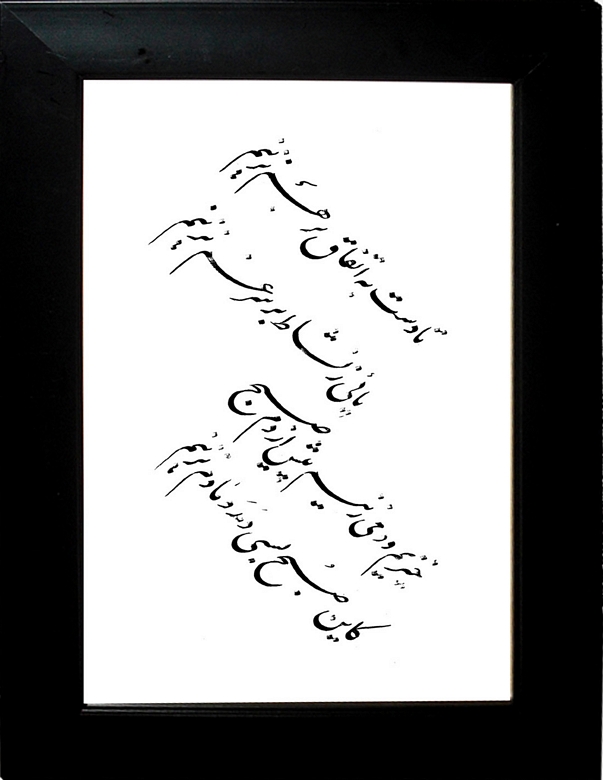 تا دست به اتفاق بر هم نزنیم
پائی ز نشاط بر سر غم نزنیم
خیزیم و دمی زنیم پیش از دم صبح
کاین صبح بسی دمد که ما دم نزنیم